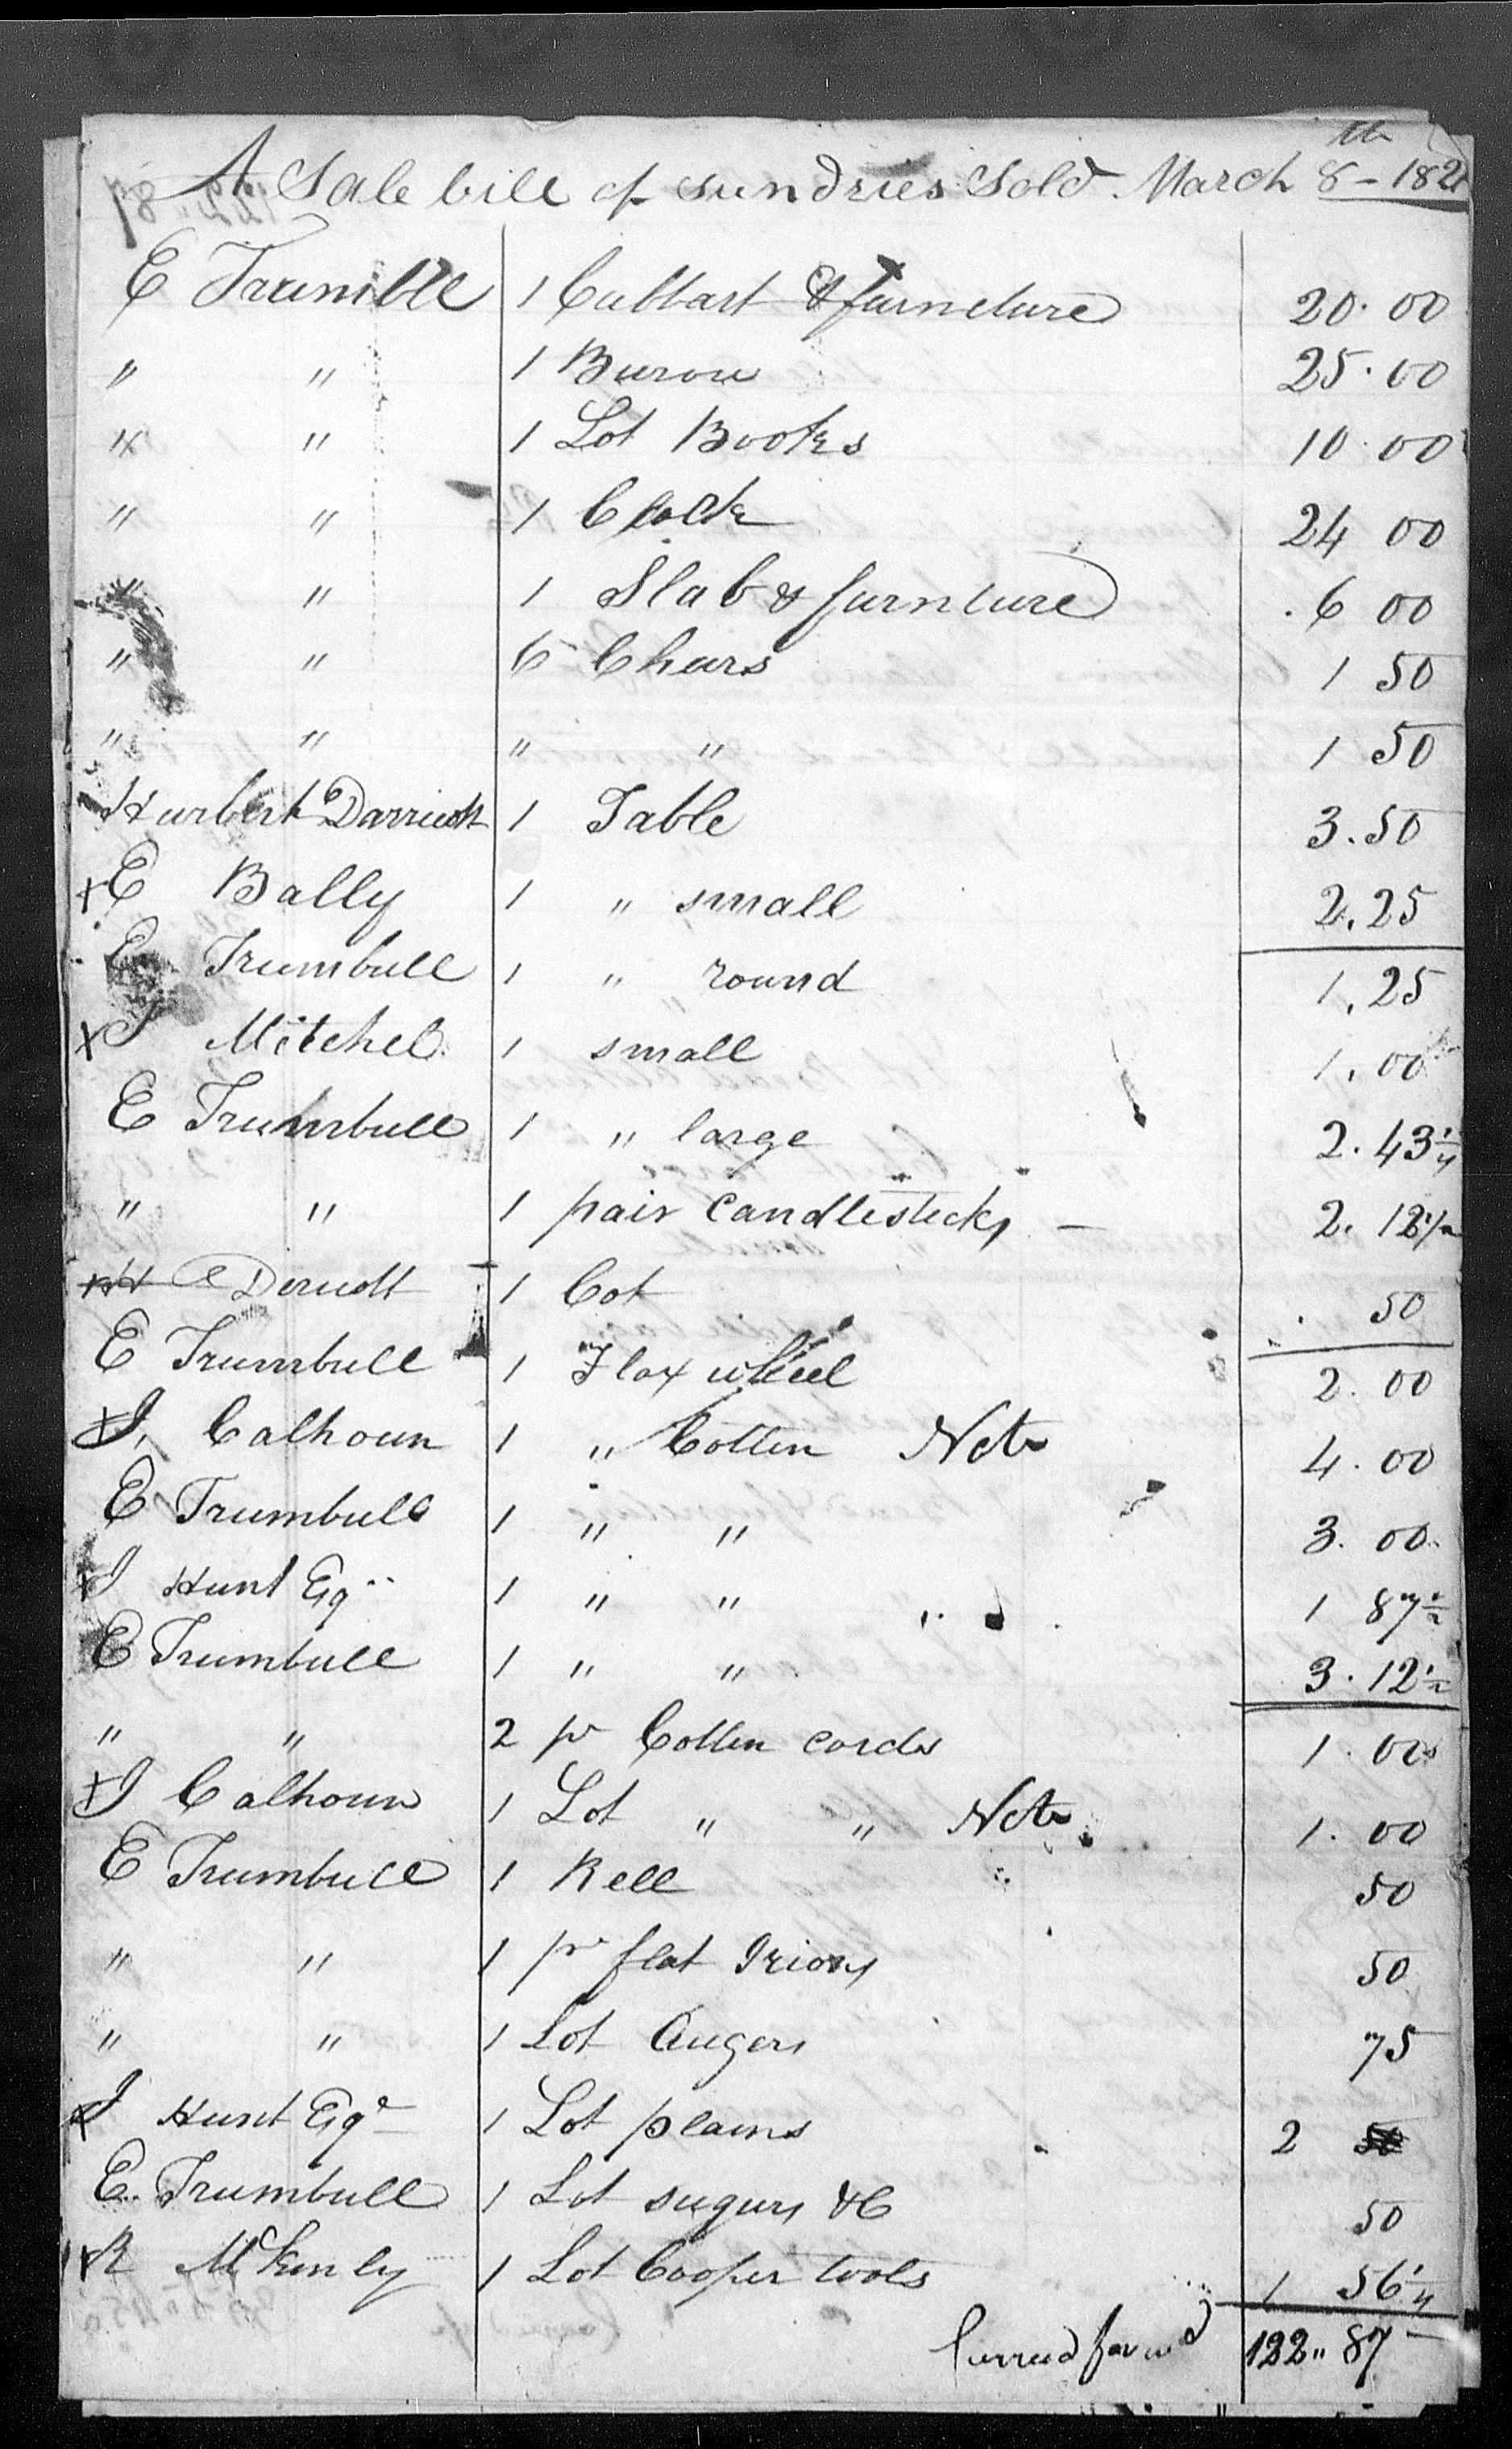 A Sale bill of sundries Sold March 8th - 182
E Trumble 1 Cubbart & furneture 20.00
" " 1 Burow 25.00
" " 1 Lot Books 10.00
" " 1 Clock 24 00
" " 1 Slab & furnture 6 00
" " 6 Chears 1 50
" " " " 1 50
Hurbert Darriudt 1 Table 3.50
x E Bally 1 " small 2.25
E Trumbull 1 " round 1.25
x J Mitchel 1 small 1.00
E Trumbull 1 " large 2.43 1/4
" " 1 pair Candlesticks — 2.12 1/2
Derudt 1 Cot 50
E Trumbull 1 Flax wheel 2.00
x J. Calhoun 1 " Cotten Note 4.00
E Trumbull 1 " " 3.00
x J Hunt Esq 1 " " 1 87 1/2
E Trumbull 1 " " 3.12 1/2
" " 2 pr Cotten cards 1.00
x J Calhoun 1 Lot " " Note 1.00
E Trumbull 1 Rell 50
" " 1 pr flat Irions 50
" " 1 Lot Augers 75
x J Hunt Esqr 1 Lot plains 2
E. Trumbull 1 Lot sugury &C 50
x R McKinly 1 Lot Cooper tools 1 56 1/4
Carried forward 122" 87